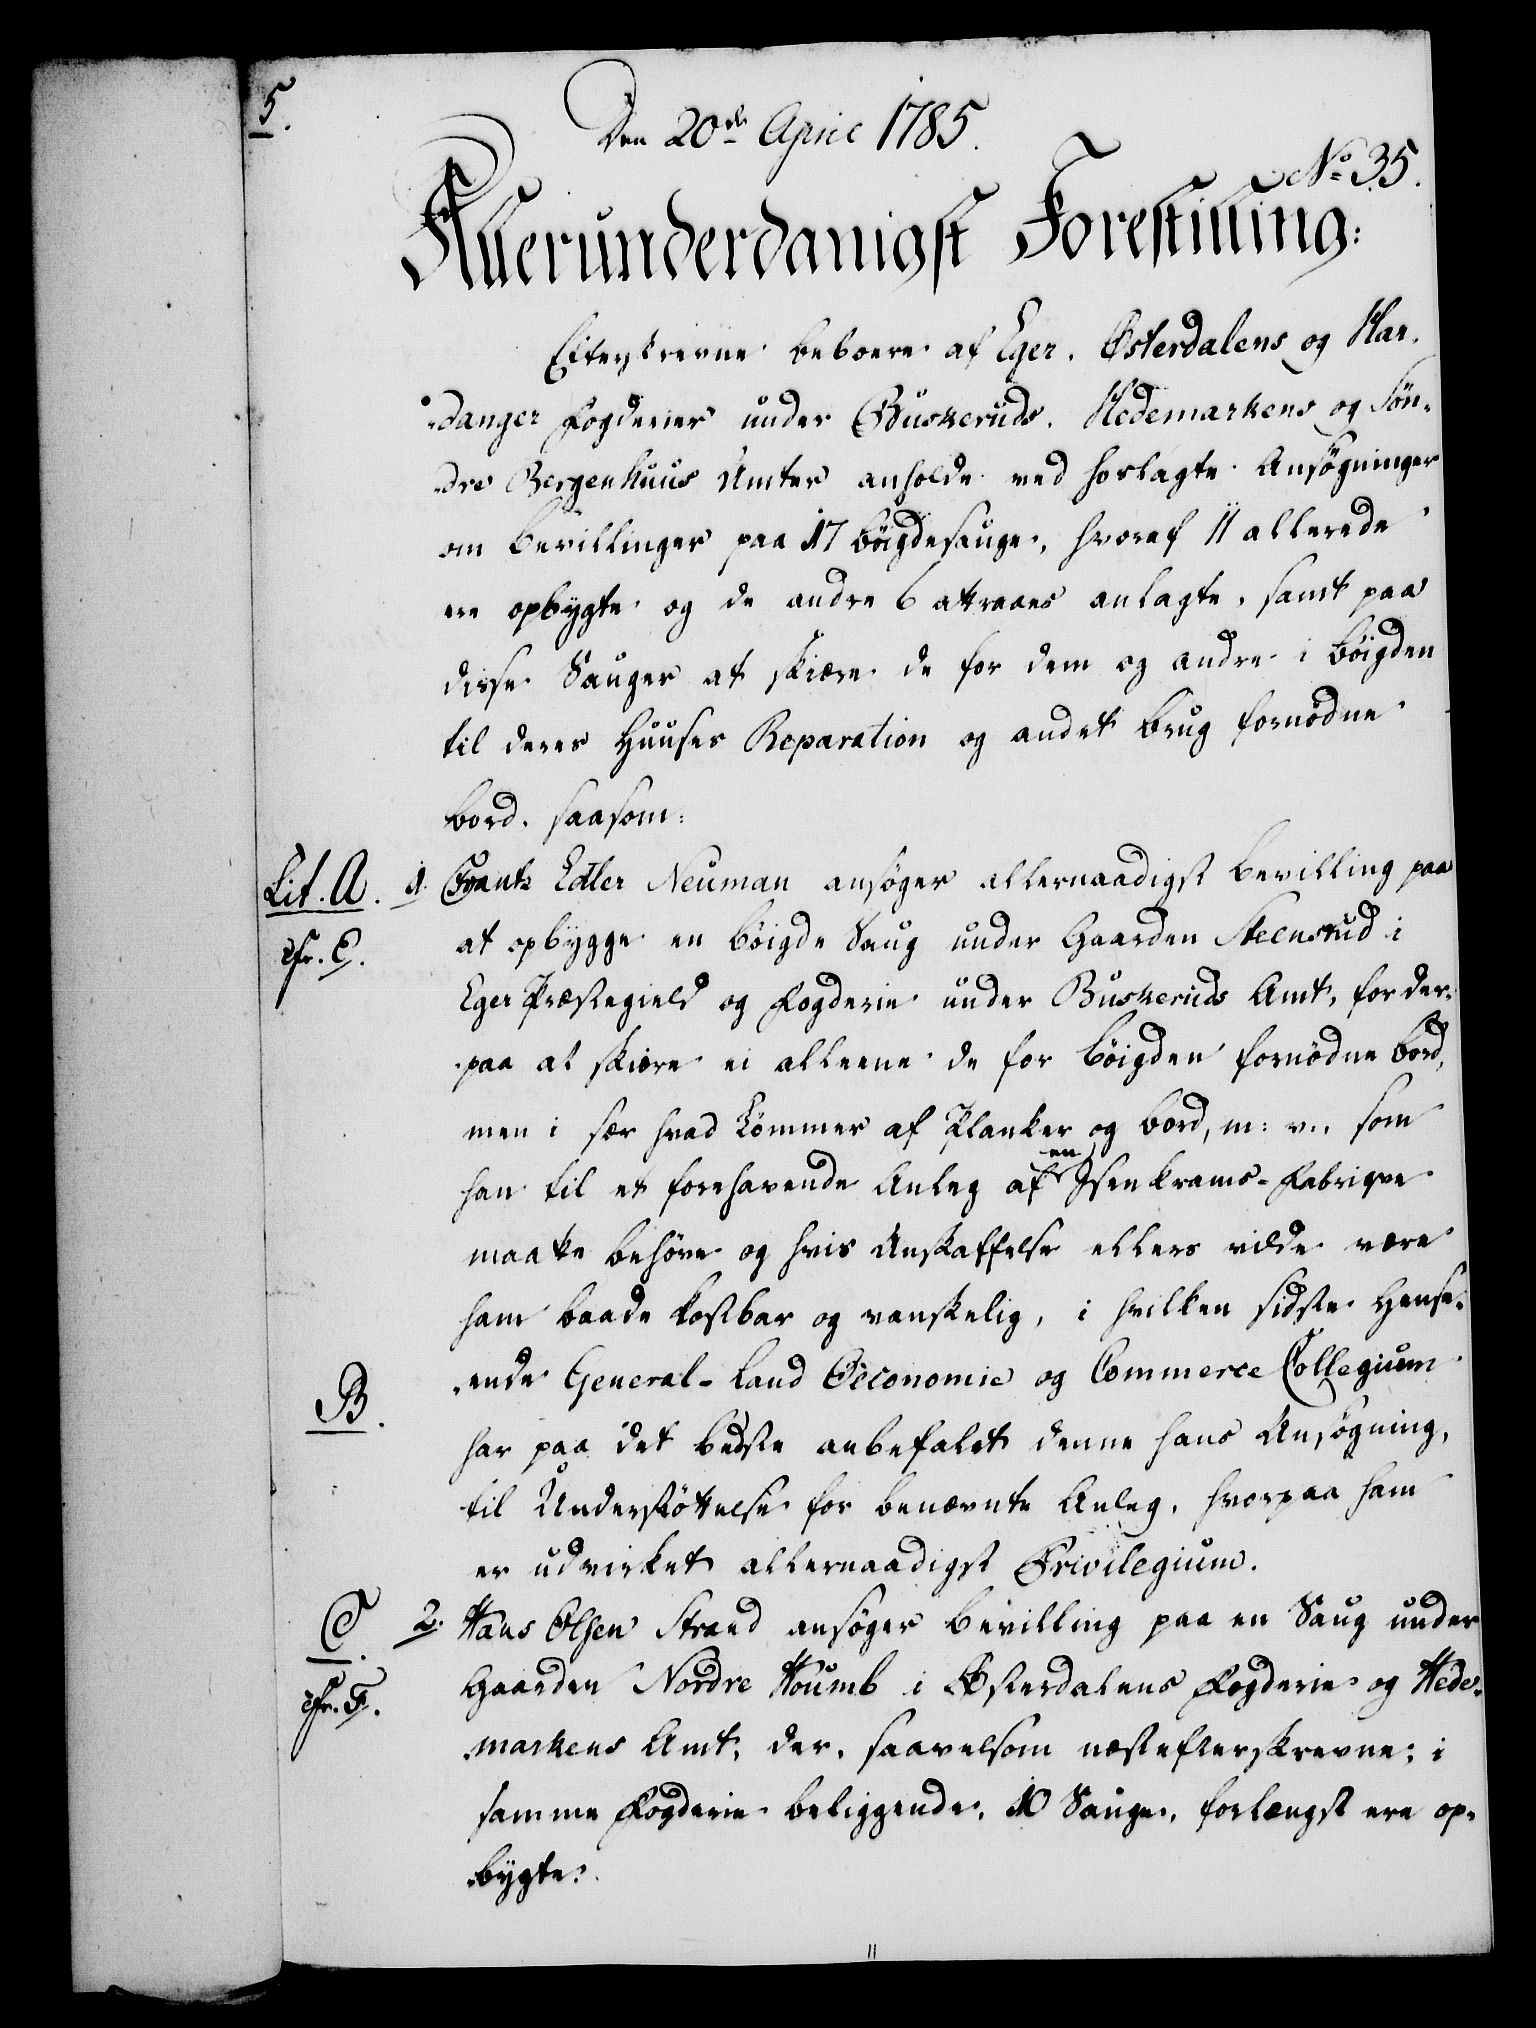 5.
Den 20de April 1785.
No 35.
Allerunderdanigst Forestilling:
Efterskrevne beboere af Eger, Østerdalens og Har-
danger Fogderier under Buskeruds, Hedemarkens og Søn-
dre Bergenhuus Amter anholde ved hoslagte Ansøgninger
om bevillinger paa 17 böigdesauge, hvoraf 11 allerede
ere opbygte og de andre 6 attraaes anlagte, samt paa
disse Sauger at skiære de for dem og andre i böigden
til deres Huuses Reparation og andet brug fornödne
bord, saasom:
Lit. A. 1. Frantz Edler Neuman ansöger allernaadigst bevilling paa
cfr. E. at opbygge en böigde Saug under Gaarden Steensrud i
Eger Præstegield og Fogderie under Buskeruds Amt, for der-
paa at skiære ei alleene de for böigden fornödne bord,
men i sær hvad Tömmer af Planker og bord, m: v., som
han til et forehavende Anleg af en Isenkrams-Fabrique
maatte behöve og hvis Anskaffelse ellers vilde være
ham baade kostbar og vanskelig, i hvilken sidste Hense-
ende General-Land Oeconomie og Commerce Collegium
B.
har paa det bedste anbefalet denne hans Ansögning,
til Understöttelse for benævnte Anleg, hvorpaa ham
er udvirket allernaadigst Privilegium.
C. 2. Hans Olsen Strand ansöger bevilling paa en Saug under
cfr. F. Gaarden Nordre Houmb i Østerdalens Fogderie og Hede-
markens Amt, der, saavelsom næstefterskrevne, i
samme Fogderie beliggende, 10 Sauge, forlængst ere op-
bygte.